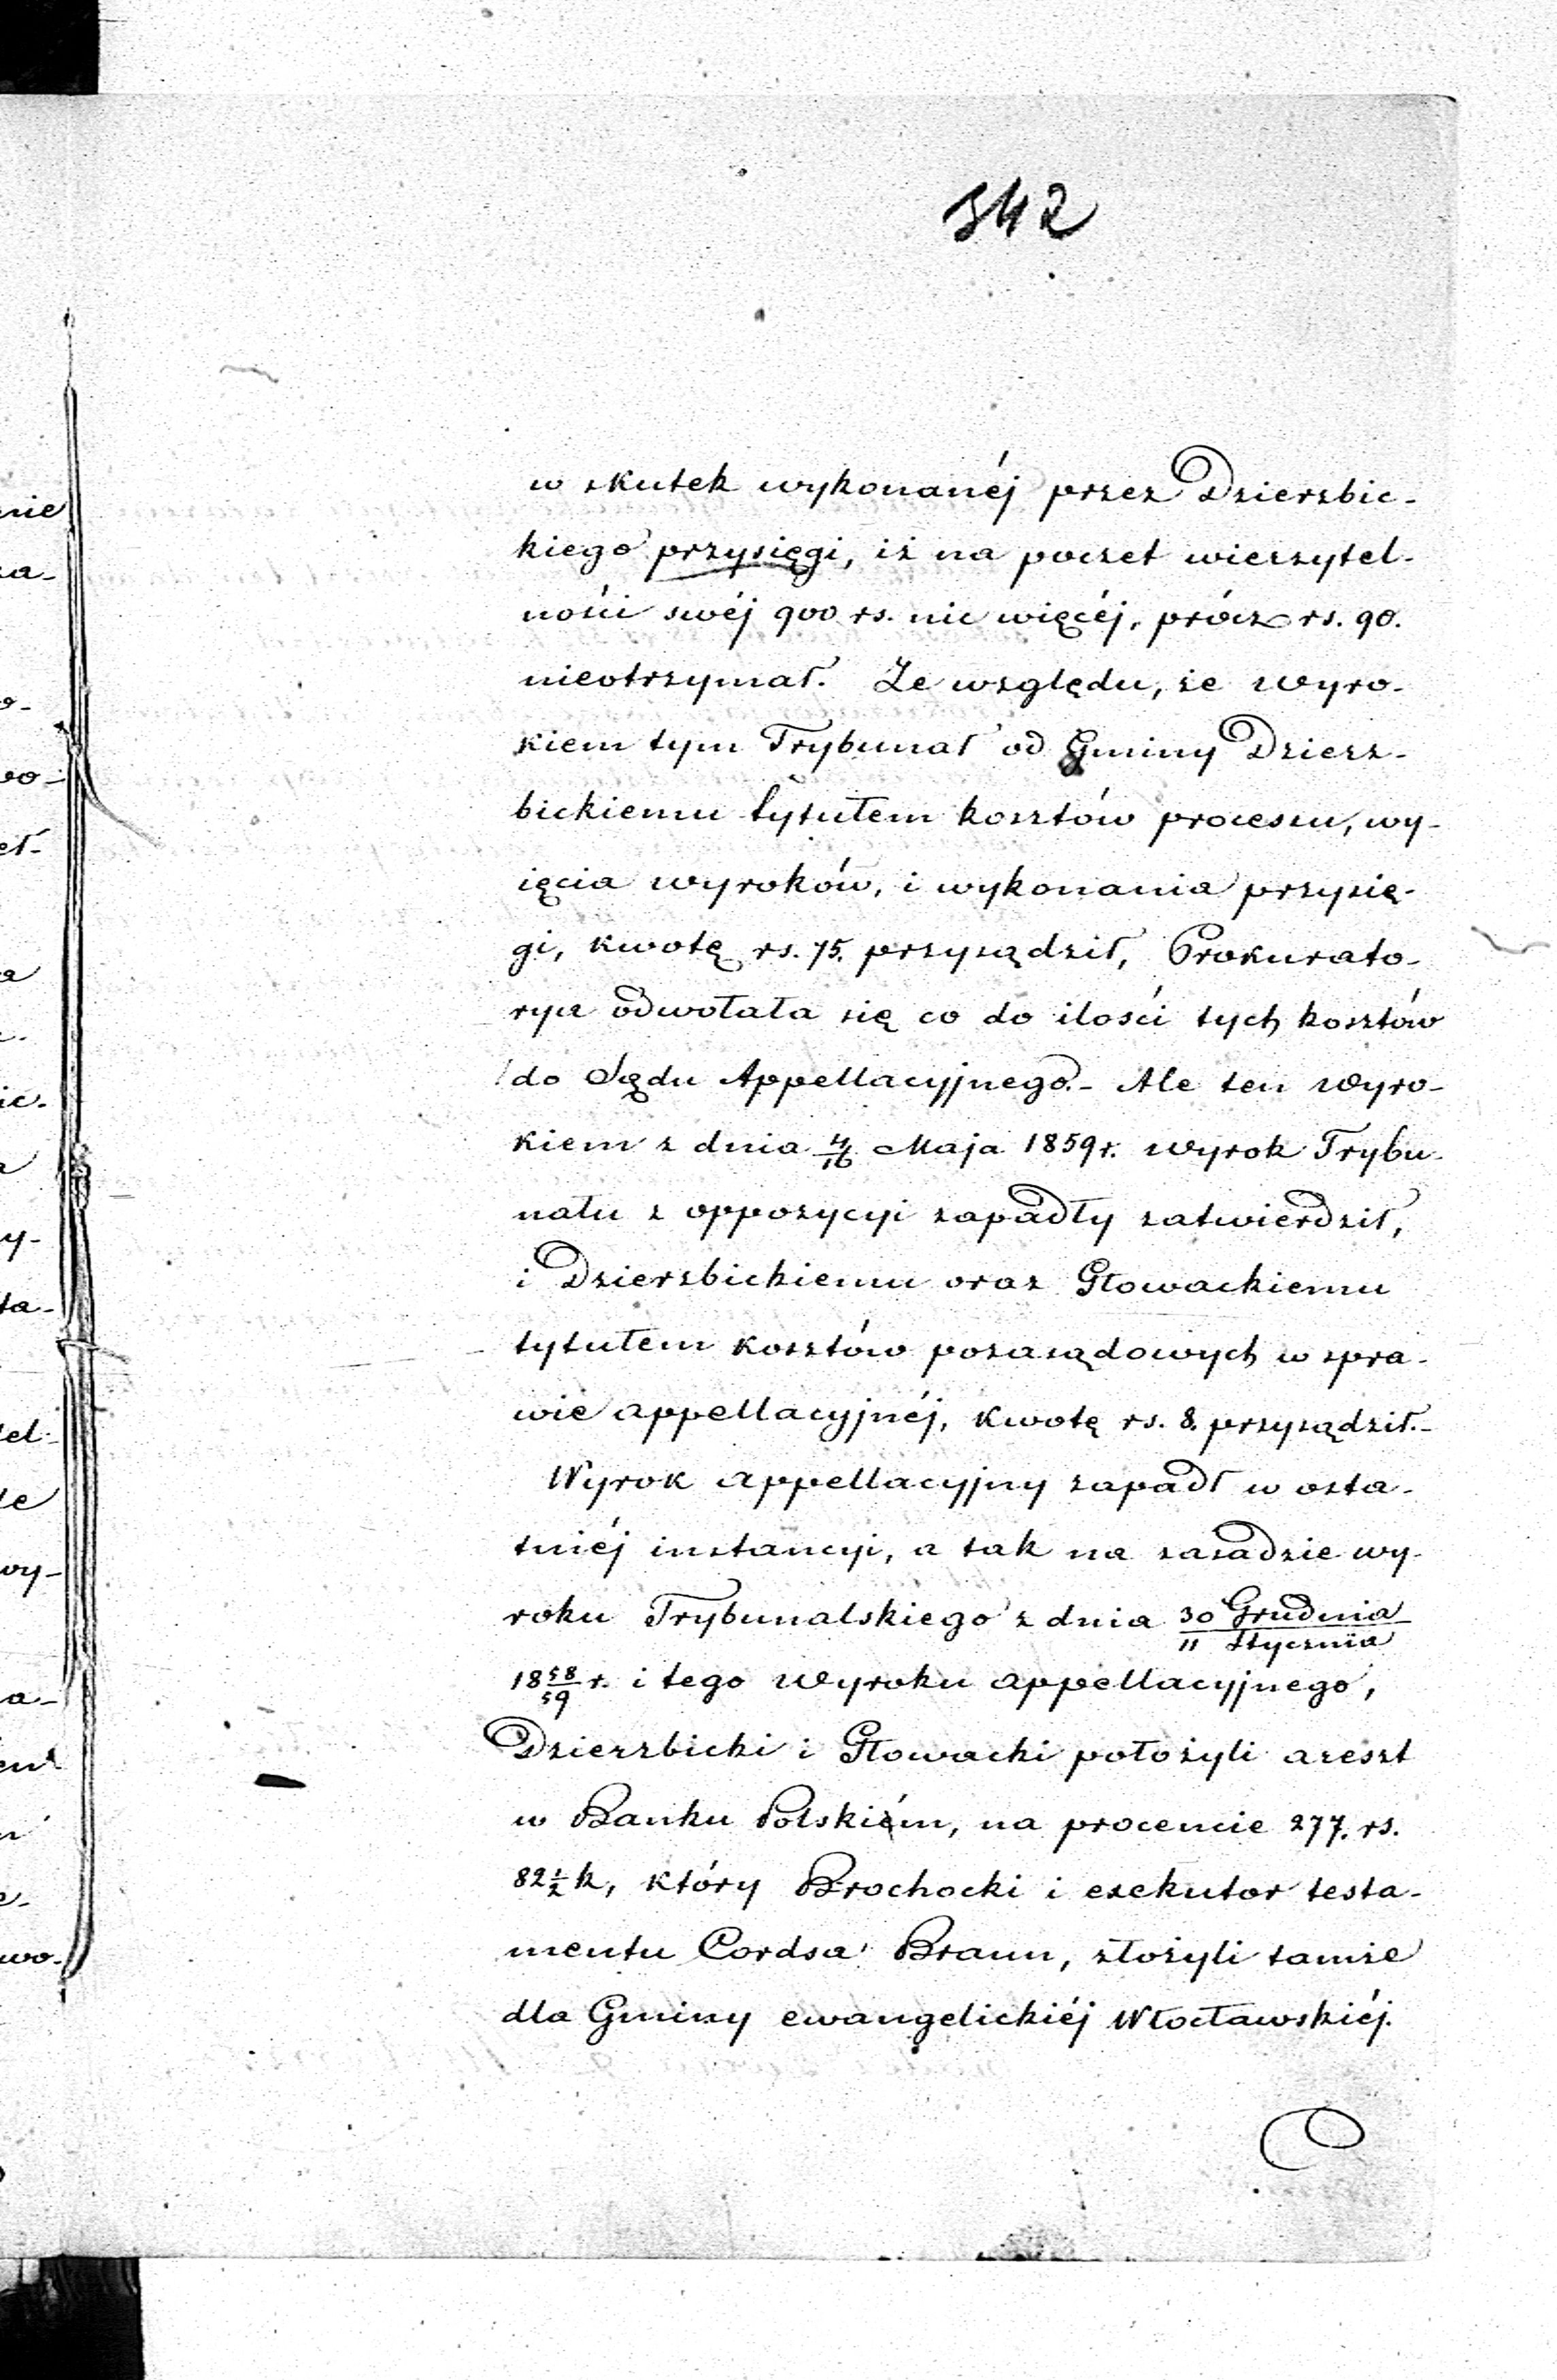 342
w skutek wykonanéj przez Dzierzbic-
kiego przysięgi, iż na poczet wierzytel-
ności swéj 900 rs. nic więcéj, prócz rs. 90.
nieotrzymał. Ze względu, że wyro-
kiem tym Trybunał od Gminy Dzierz-
bickiemu tytułem kosztów procesu, wy-
ięcia wyroków, i wykonania przysię-
gi, kwotę rs. 75. przysądził, Prokurato-
rya odwołała się co do ilości tych kosztów
do Sądu Appellacyjnego.- Ale ten wyro-
kiem z dnia 4/16 Maja 1859 r. wyrok Trybu-
nału z oppozycyi zapadły zatwierdził,
i Dzierzbickiemu oraz Głowackiemu
tytułem kosztów pozasądowych w spra-
wie appellacyjnéj, kwotę rs. 8. przysądził.-
Wyrok appellacyjny zapadł w osta-
tniéj instancyi, a tak na zasadzie wy-
roku Trybunalskiego z dnia 30 Grudnia
11 Stycznia
18 58/59 r. i tego wyroku appellacyjnego,
Dzierzbicki i Głowacki położyli areszt
w Banku Polskiém, na procencie 277. rs.
82 1/2 k, który Brochocki i exekutor testa-
mentu Cordsa Braun, złożyli tamże
dla Gminy ewangelickiéj Włocławskiéj.